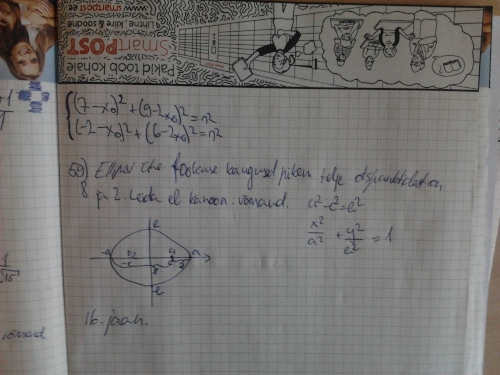 Pakid töökohale
SmartPOST
Lihtne, kiire & soodne
www.smartpost.ee
(7-x₀)²+(9-2x₀)²=r²
(-2-x₀)²+(6-2x₀)²=r²
59) Ellipsi ühe fookuse kaugused pikema telje otspunktidest on
8 ja 2. Leida el. kanoon. võrrand. a²-c²=b²
x²/a² + y²/b² = 1
16. jaan.
võrrand